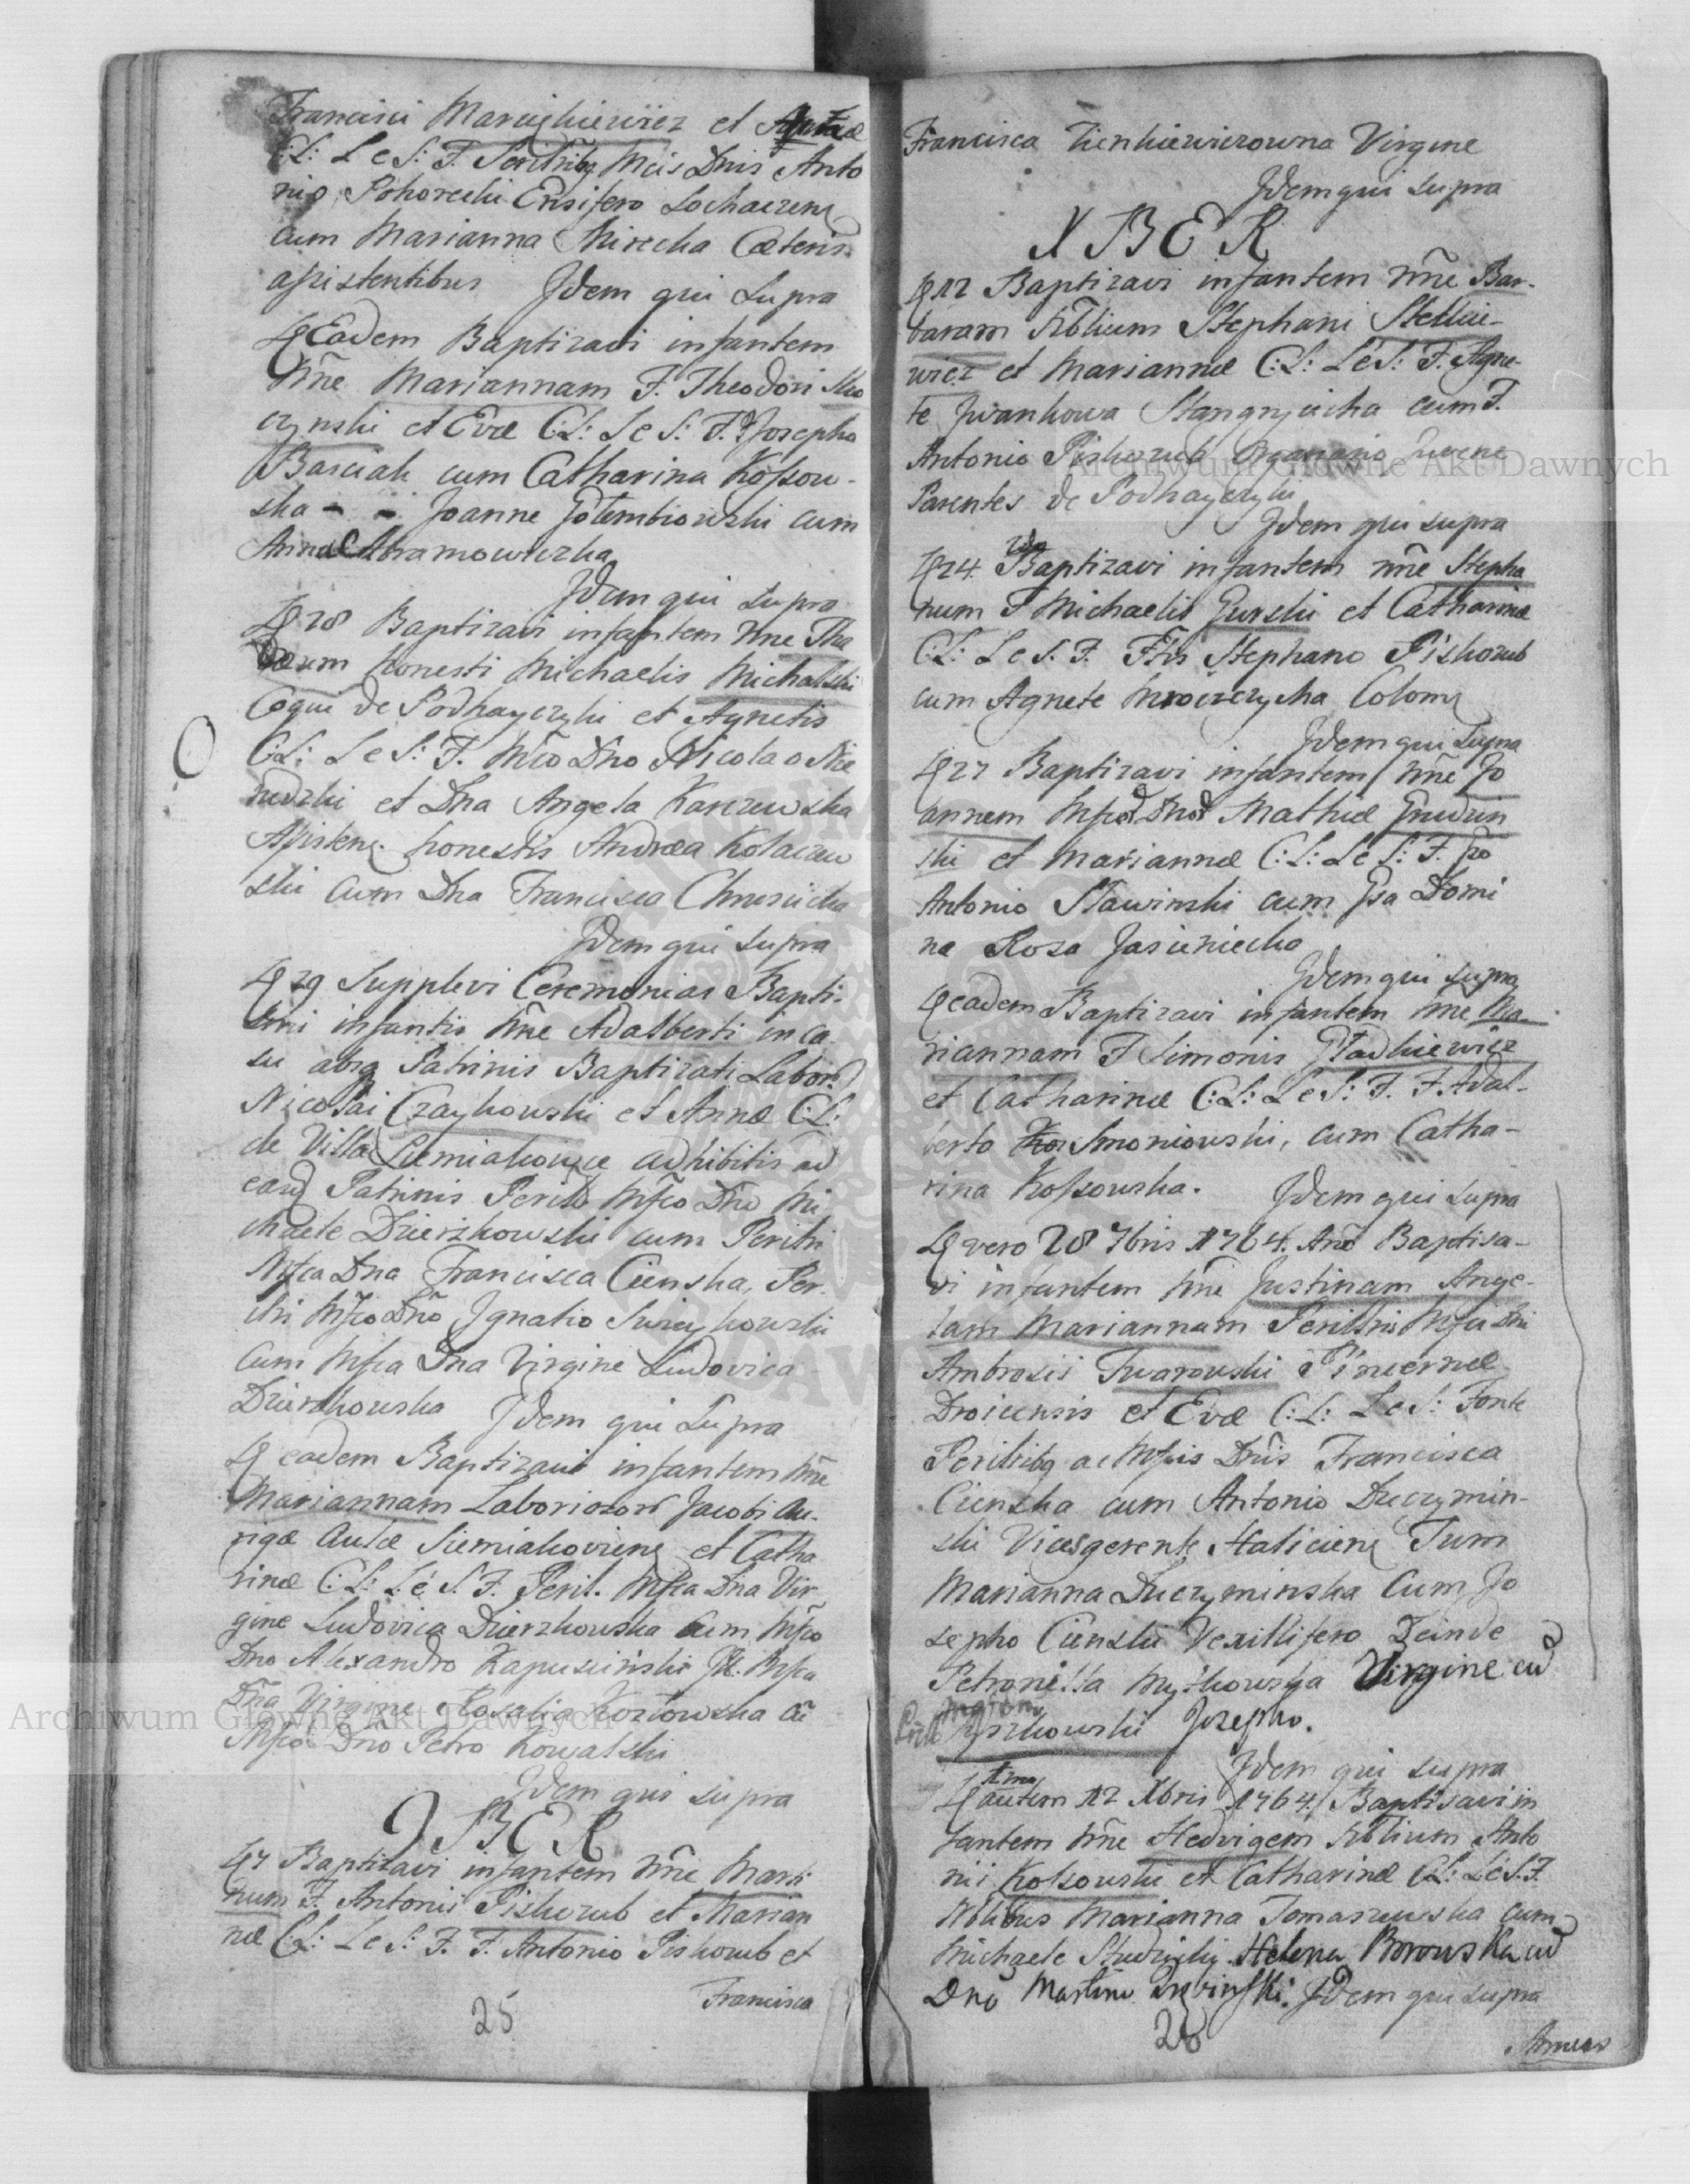 Francisci Marcijkiewicz et Agnetæ
C:L: L e S: F. Perillribq Mcis Dnis Anto
nio Pohorecki Ensifero Lochacens
cum Marianna Mirecka Cæteris
assistentibus Idem qui Supra
Eadem Baptizavi infantem
Nne Mariannam F. Theodori Mo
czynski et Evæ C:L: L e S: F. F Josepho
Basciak cum Catharina Kossow-
ska - - Joanne Gołembiowski cum
Anna Abramowiczka
Idem qui Supra
D 28 Baptizavi infantem Nne Tha
dæum honesti Michaelis Michalski
Coqui de Podhayczyki et Agnetis
C:L: L e S: F. Mco Dno Nicolao Nie
nedzki et Dna Angela Karczewska
Assisten. honestis Andrea Kołaczew
ski cum Dna Francisca Chmiericka
Idem qui Supra
D 29 Supplevi Ceremonias Bapti-
smi infantis Nne Adalberti in ca
su absq Patrinis Baptizati Labor:
Nicolai Czaykowski et Annæ C:L:
de Villa Siemiakowce adhibitis ad
eas Patrinis Perill Mfco Dno Mi
chaele Dzierzkowski cum Perilri
Mfca Dna Francisca Cienska, Per-
ilri Mfco Dno Ignatio Swieykowski
cum Mfca Dna Virgine Ludovica
Dzierzkowska Idem qui Supra
D eadem Baptizavi infantem Nne
Mariannam Laboriosor Jacobi Au-
rigæ Aulæ Siemiakoviens et Catha
rinæ C:L: L e S F. Peril. Mfca Dna Vir
gine Ludovica Dzierzkowska cum Mfco
Dno Alexandro Kapuscinski Pl. Mfca
Dna Virgine Rosalia Kozłowska cū
Mfco Dno Petro Kowalski
Idem qui Supra
9 BER
D 7 Baptizavi infantem Nne Marti
num F. Antonii Piskozub et Marian
næ C:L: L e S: F. F. Antonio Piskozub et
Francisca
25
Francisca Zienkiewiczowna Virgine
Idem qui Supra
X BER
D 12 Baptizavi infantem Nne Bar-
baram Nblium Stephani Stelkie-
wicz et Mariannæ C:L: L e S: F. Agne-
te Iwankowa Stangrycicha cum F.
Antonio Piskozub Organario Juvene
Parentes de Podhayczyki
Idem qui Supra
D 24. Baptizavi infantem Nne Stepha
num F Michaelis Gurski et Catharinæ
C:L: L e S. F. Fblis Stephano Piskozub
cum Agnete Mroczczycha Colomy
Idem qui Supra
D 27 Baptizavi infantem Nne Jo
annem Mfcor Dnor Mathiæ Grudzin
ski et Mariannæ C:L: L e S: F. Gso
Antonio Sławinski cum Gsa Domi
na Rosa Jasieniecka
Idem qui Supra
D eadem Baptizavi infantem Nne Ma
riannam F Simonis Gładkiewicz
et Catharinæ C:L: L e S: F. F. Adal-
berto Smoniowski, cum Catha-
rina Kossowska. Idem qui Supra
D vero 28 7bris 1764. Ano Baptisa-
vi infantem Nne Justinam Ange-
lam Mariannam Perillris Mfci Dni
Ambrosii Twarowski Pincernæ
Drociensis et Evæ C:L: L e S: Fonte
Perilribq ac Mfcis Dnis Francisca
Cienska cum Antonio Duczymin-
ski Vicesgerente Haliciens Tum
Marianna Duczyminska cum Jo
sepho Cienski Vexillifero Deinde
Petronella Myłkowska Virgine cū
Josepho.
Idem qui Supra
D autem 12 Xbris 1764. Baptisavi in
fantem Nne Hedvigem Nblium Anto
nii Kossowski et Catharinæ C:L: L e S. F.
Nblibus Marianna Tomaszewska cum
Michaele Studzinski Helena Borowska cū
Dno Martino Idem qui Supra
26